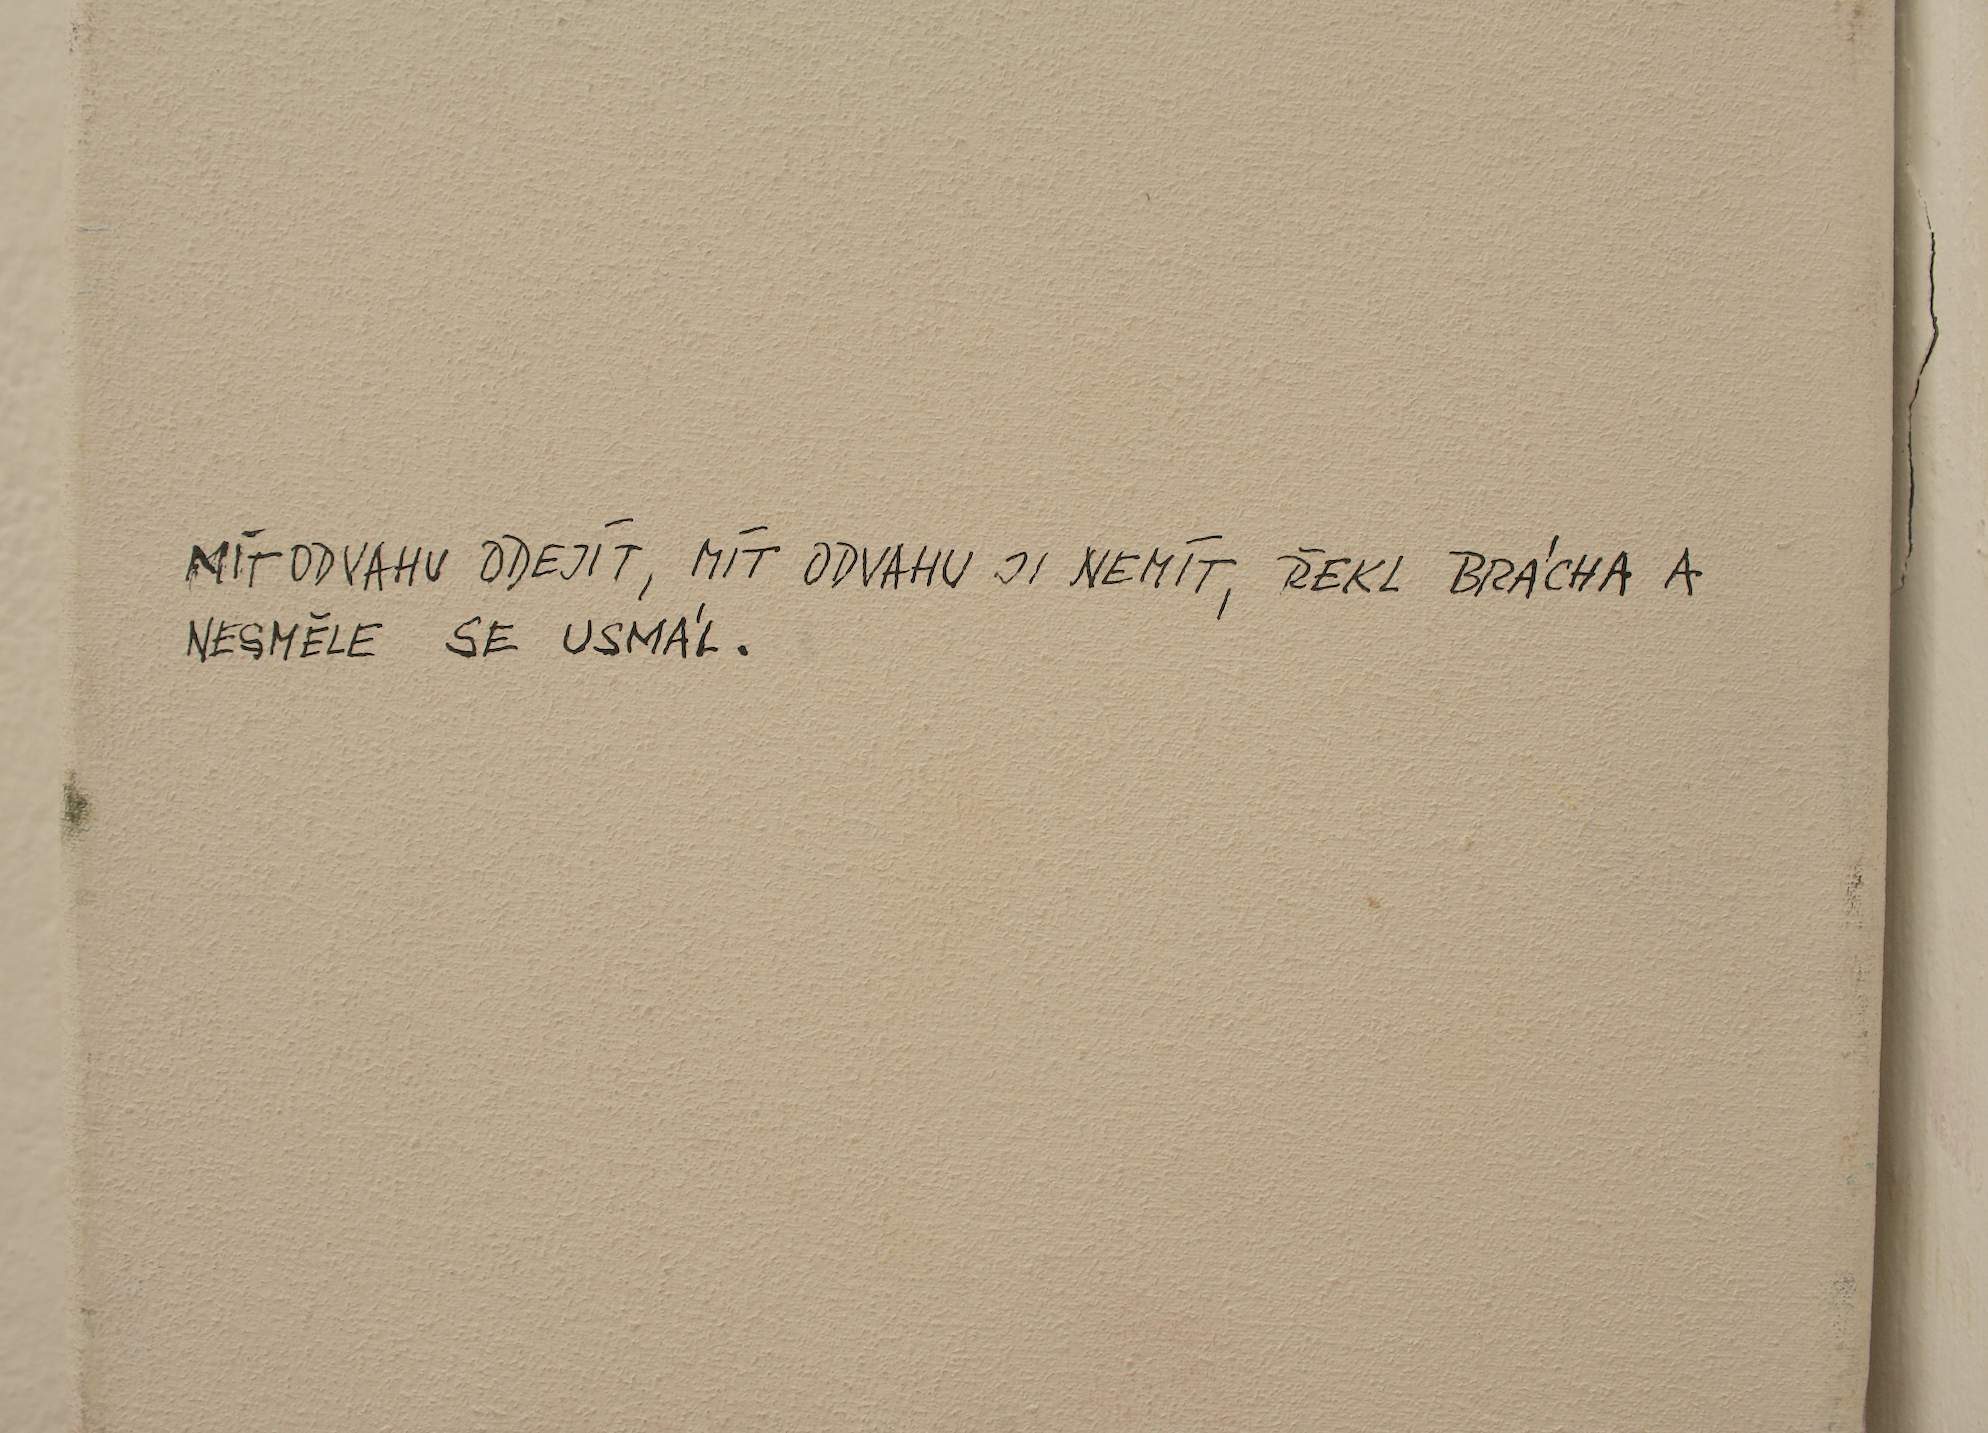 MÍT ODVAHU ODEJÍT, MÍT ODVAHU JI NEMÍT, ŘEKL BRÁCHA A
NESMĚLE SE USMÁL.